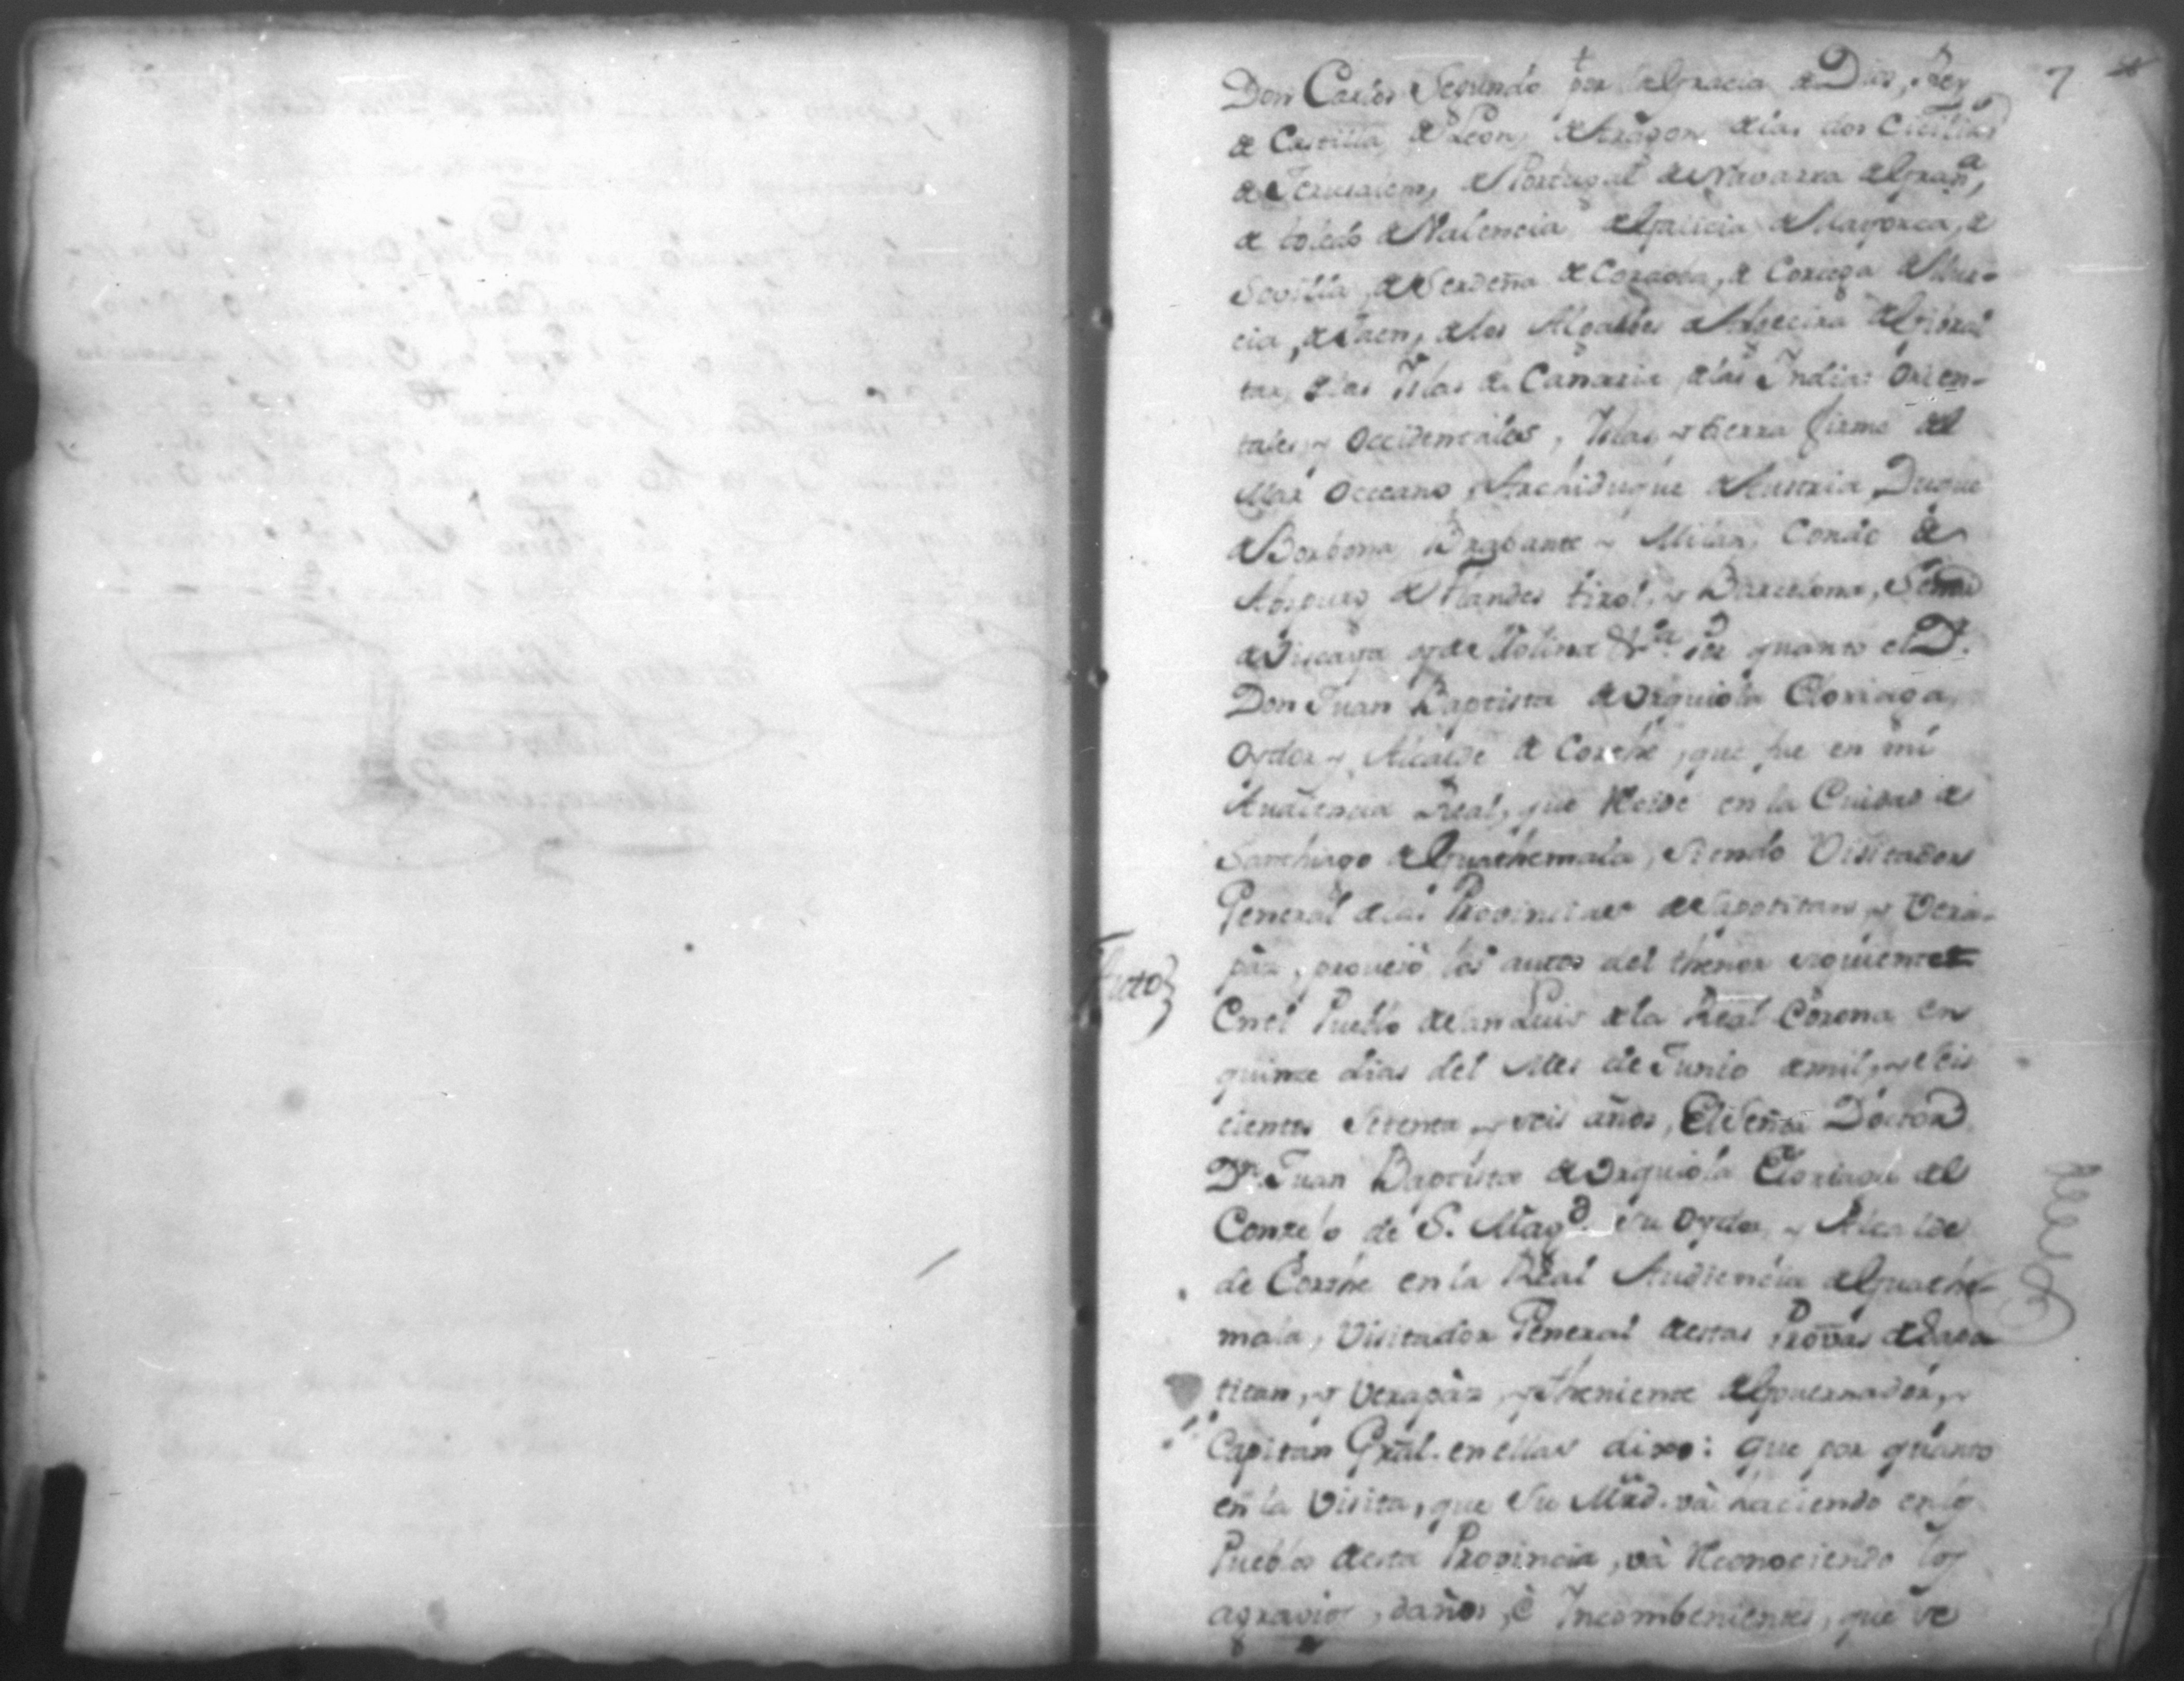 7
Don Carlos Segundo por la Gracia de Dios, Rey
de Castilla, de Leon, de Aragon, de las dos Cicilias
de Jerusalem, de Portugal de Navarra de Gran.ª,
de toledo de Valencia de Galicia de Mayorca, de
Sevilla, de Serdeña de Cordoba, de Corcega de Mur-
cia, de Jaen, de los Algarbes de Algecira de Gibral
tar, de las Islas de Canaria, de las Indias Orien-
tales, y Occidentales, Islas, y tierra firme del
Mar Occeano, Archiduque de Austria, Duque
de Borbona, Brabante y Milan, Conde de
Abspurg de Flandes tirol, y Barcelona, Señor
de Viscaya, y de Molina &.ª Por quanto el D.r
Don Juan Baptista de Urquiola Eloriaga,
Oydor y Alcalde de Corthe, que fue en mi
Audiencia Real, que Reside en la Ciudad de
Santhiago de Guathemala, siendo Visitador
General de las Provincias de Sapotitan, y Vera-
páz, proveió los autos del thenor siguiente=
Auto
En el Pueblo de San Luis de la Real Corona en
quinze dias del Mes de Junio de mil, y seis
cientos setenta, y seis años, El Señor Doctor
D.n Juan Baptista de Urquiola Eloriaga del
Consejo de S. Mag.d su Oydor, y Alcalde
de Corthe en la Real Audiencia de Guathe-
mala, Visitador General de estas Prov̄as de Sapo
titan, y Verapáz, y theniente de Governador, y
Capitan Grãl. en ellas dixo: que por quanto
en la Visita, que Su Mrd. vá haciendo en los
Pueblos de esta Provincia, vá Reconociendo los
agravios, daños, è Incombenientes, que se